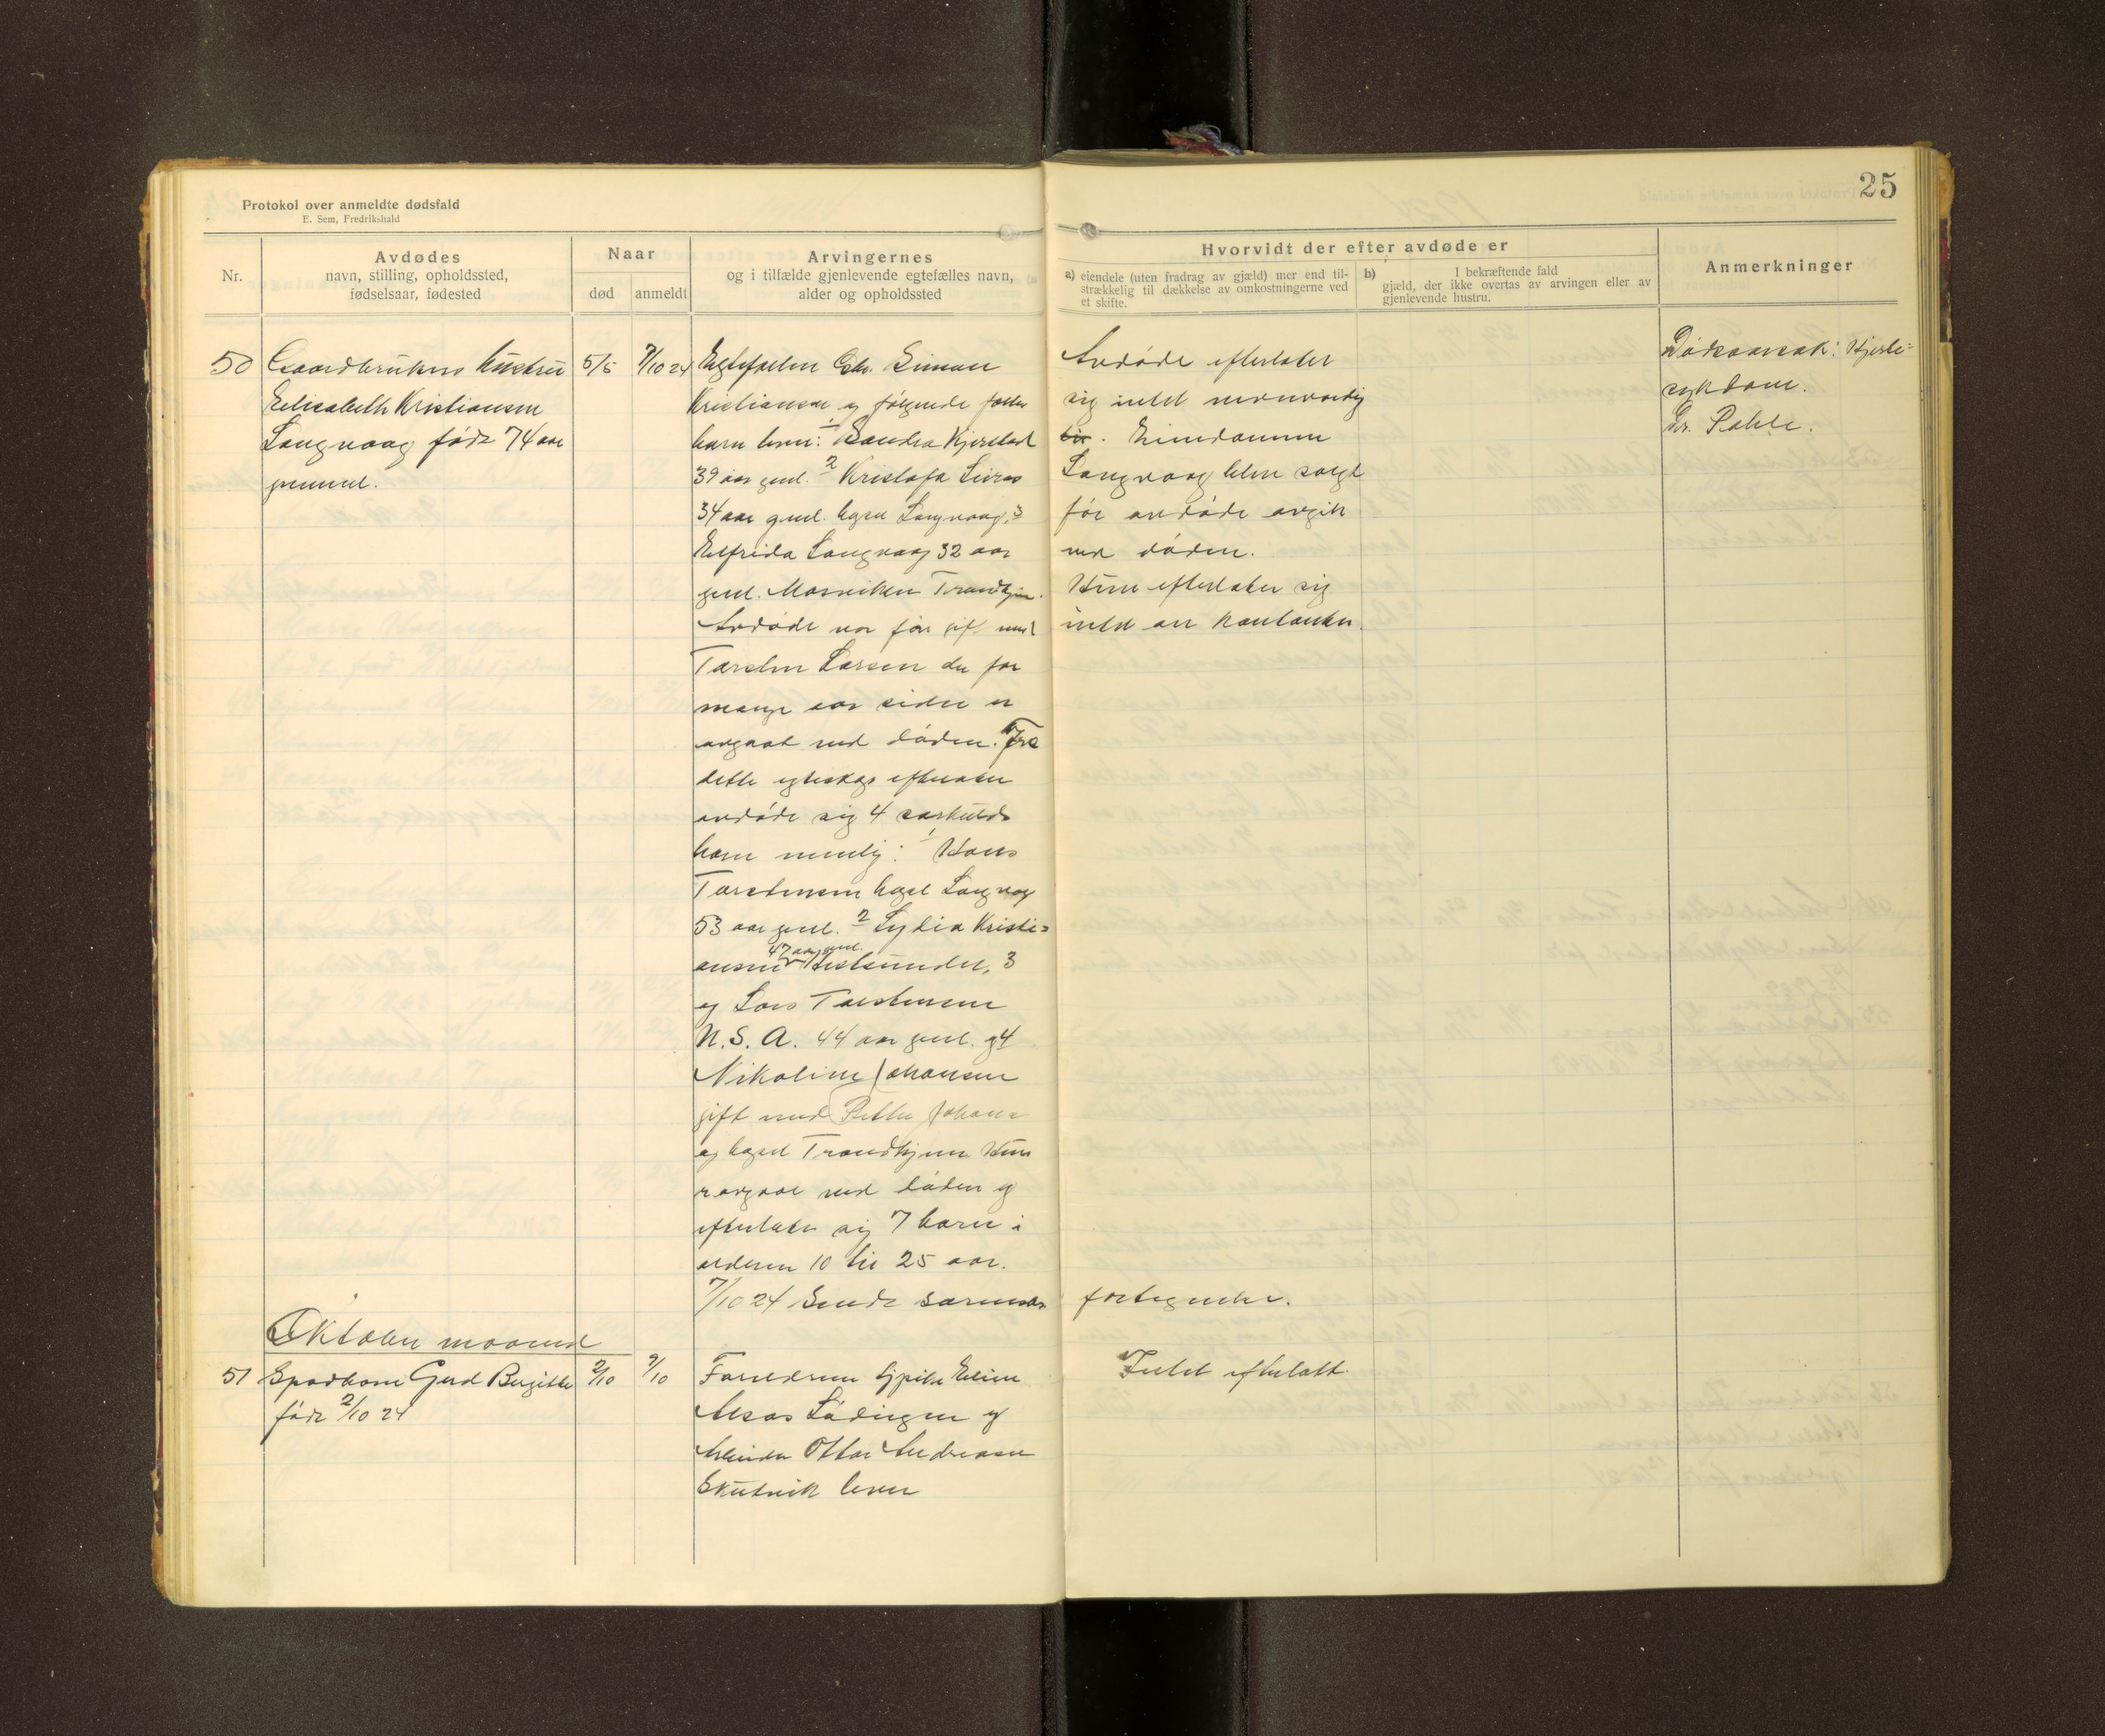 Protokol over anmeldte dødsfald
E. Sem, Fredrikshald
25
Nr.
Avdødes
navn, stilling, opholdssted,
fødselsaar, fødested
Naar
død
anmeldt
Arvingernes
og i tilfælde gjenlevende egtefælles navn,
alder og opholdssted
Hvorvidt der efter avdøde er
a) eiendele (uten fradrag av gjæld) mer end til-
strækkelig til dækkelse av omkostningerne ved
et skifte.
b) I bekræftende fald
gjæld, der ikke overtas av arvingen eller av
gjenlevende hustru.
Anmerkninger
50
Gaardbrukers hustru
Elisabeth Kristiansen
Langvaag født 74 aar
gammel.
5/5
7/10 24
Egtefællen Gbr. Simon
Kristiansen og følgende fælles
barn lever: 1 Sandra Kjerstad
39 aar gml. 2 Kristofa Leires
34 aar gml. bopæl Langvaag, 3
Elfrida Langvaag 32 aar
gml. Mosviken Trondhjem.
Avdøde var før gift med
Torsten Larsen der for
mange aar siden er
avgaat ved døden. Fra
dette egteskap efterlater
avdøde sig 4 særkulds
barn nemlig: 1 Hans
Torstensen bopæl Langvaag
53 aar gml. 2 Lydia Kristi=
ansen 47 aar gml. Kristiansund, 3
og Lars Torstensen
U. S. A. 44 aar gml. og 4
Nikoline Johansen
gift med Petter Johans
og bopæl Trondhjem. Hun
er avgaat ved døden og
efterlater sig 7 barn i
alderen 10 til 25 aar.
7/10 24 Sendt
Avdøde efterlater
sig intet nevneverdig
. Eiendommen
Langvaag blev solgt
før avdøde avgik
ved døden.
Hun efterlater sig
intet av kontanter.
fortegnelse.
Dødsaarsak: Hjerte=
sykdom.
Dr. Pahle.
Oktober maaned
51
Spædbarn Gerd Birgitte
født 2/10 24
2/10
9/10
Forældrene Elise
Aksas Lødingen og
Arbeider Ottar Andreasen
Skutvik lever
Intet efterlatt.